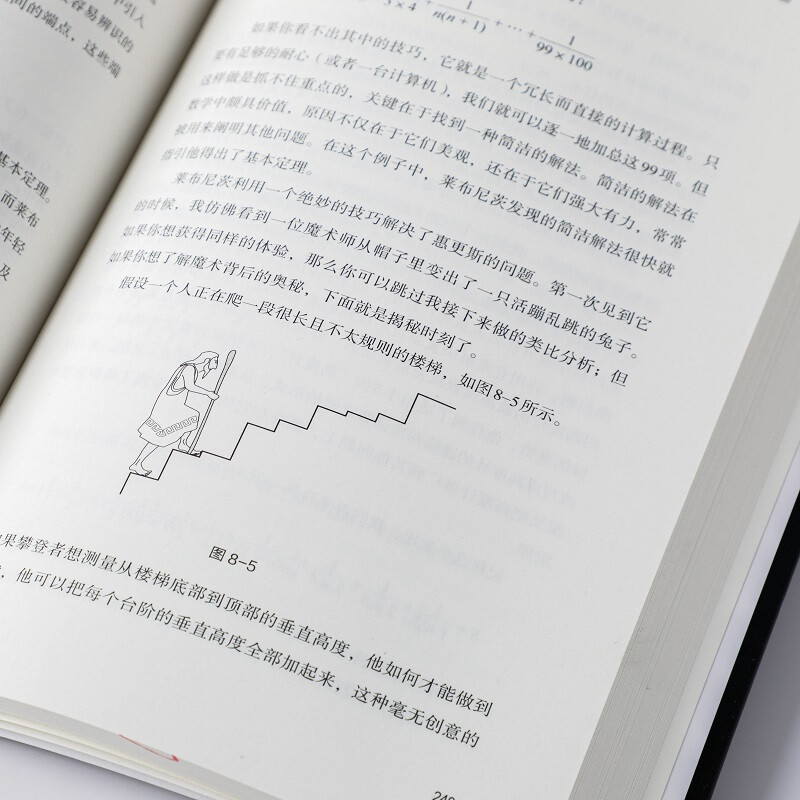 中引入
容易辨识的
间的端点，这些端
基本定理。
而莱布
年轻
及
3×4 + 1/n(n+1) + ⋯ + 1/99×100
如果你看不出其中的技巧，它就是一个冗长而直接的计算过程。只
要有足够的耐心（或者一台计算机），我们就可以逐一地加总这99项。但
这样做是抓不住重点的，关键在于找到一种简洁的解法。简洁的解法在
数学中颇具价值，原因不仅在于它们美观，还在于它们强大有力，常常
被用来阐明其他问题。在这个例子中，莱布尼茨发现的简洁解法很快就
指引他得出了基本定理。
莱布尼茨利用一个绝妙的技巧解决了惠更斯的问题。第一次见到它
的时候，我仿佛看到一位魔术师从帽子里变出了一只活蹦乱跳的兔子。
如果你想获得同样的体验，那么你可以跳过我接下来做的类比分析；但
如果你想了解魔术背后的奥秘，下面就是揭秘时刻了。
假设一个人正在爬一段很长且不太规则的楼梯，如图8-5所示。
图8-5
果攀登者想测量从楼梯底部到顶部的垂直高度，他如何才能做到
，他可以把每个台阶的垂直高度全部加起来，这种毫无创意的